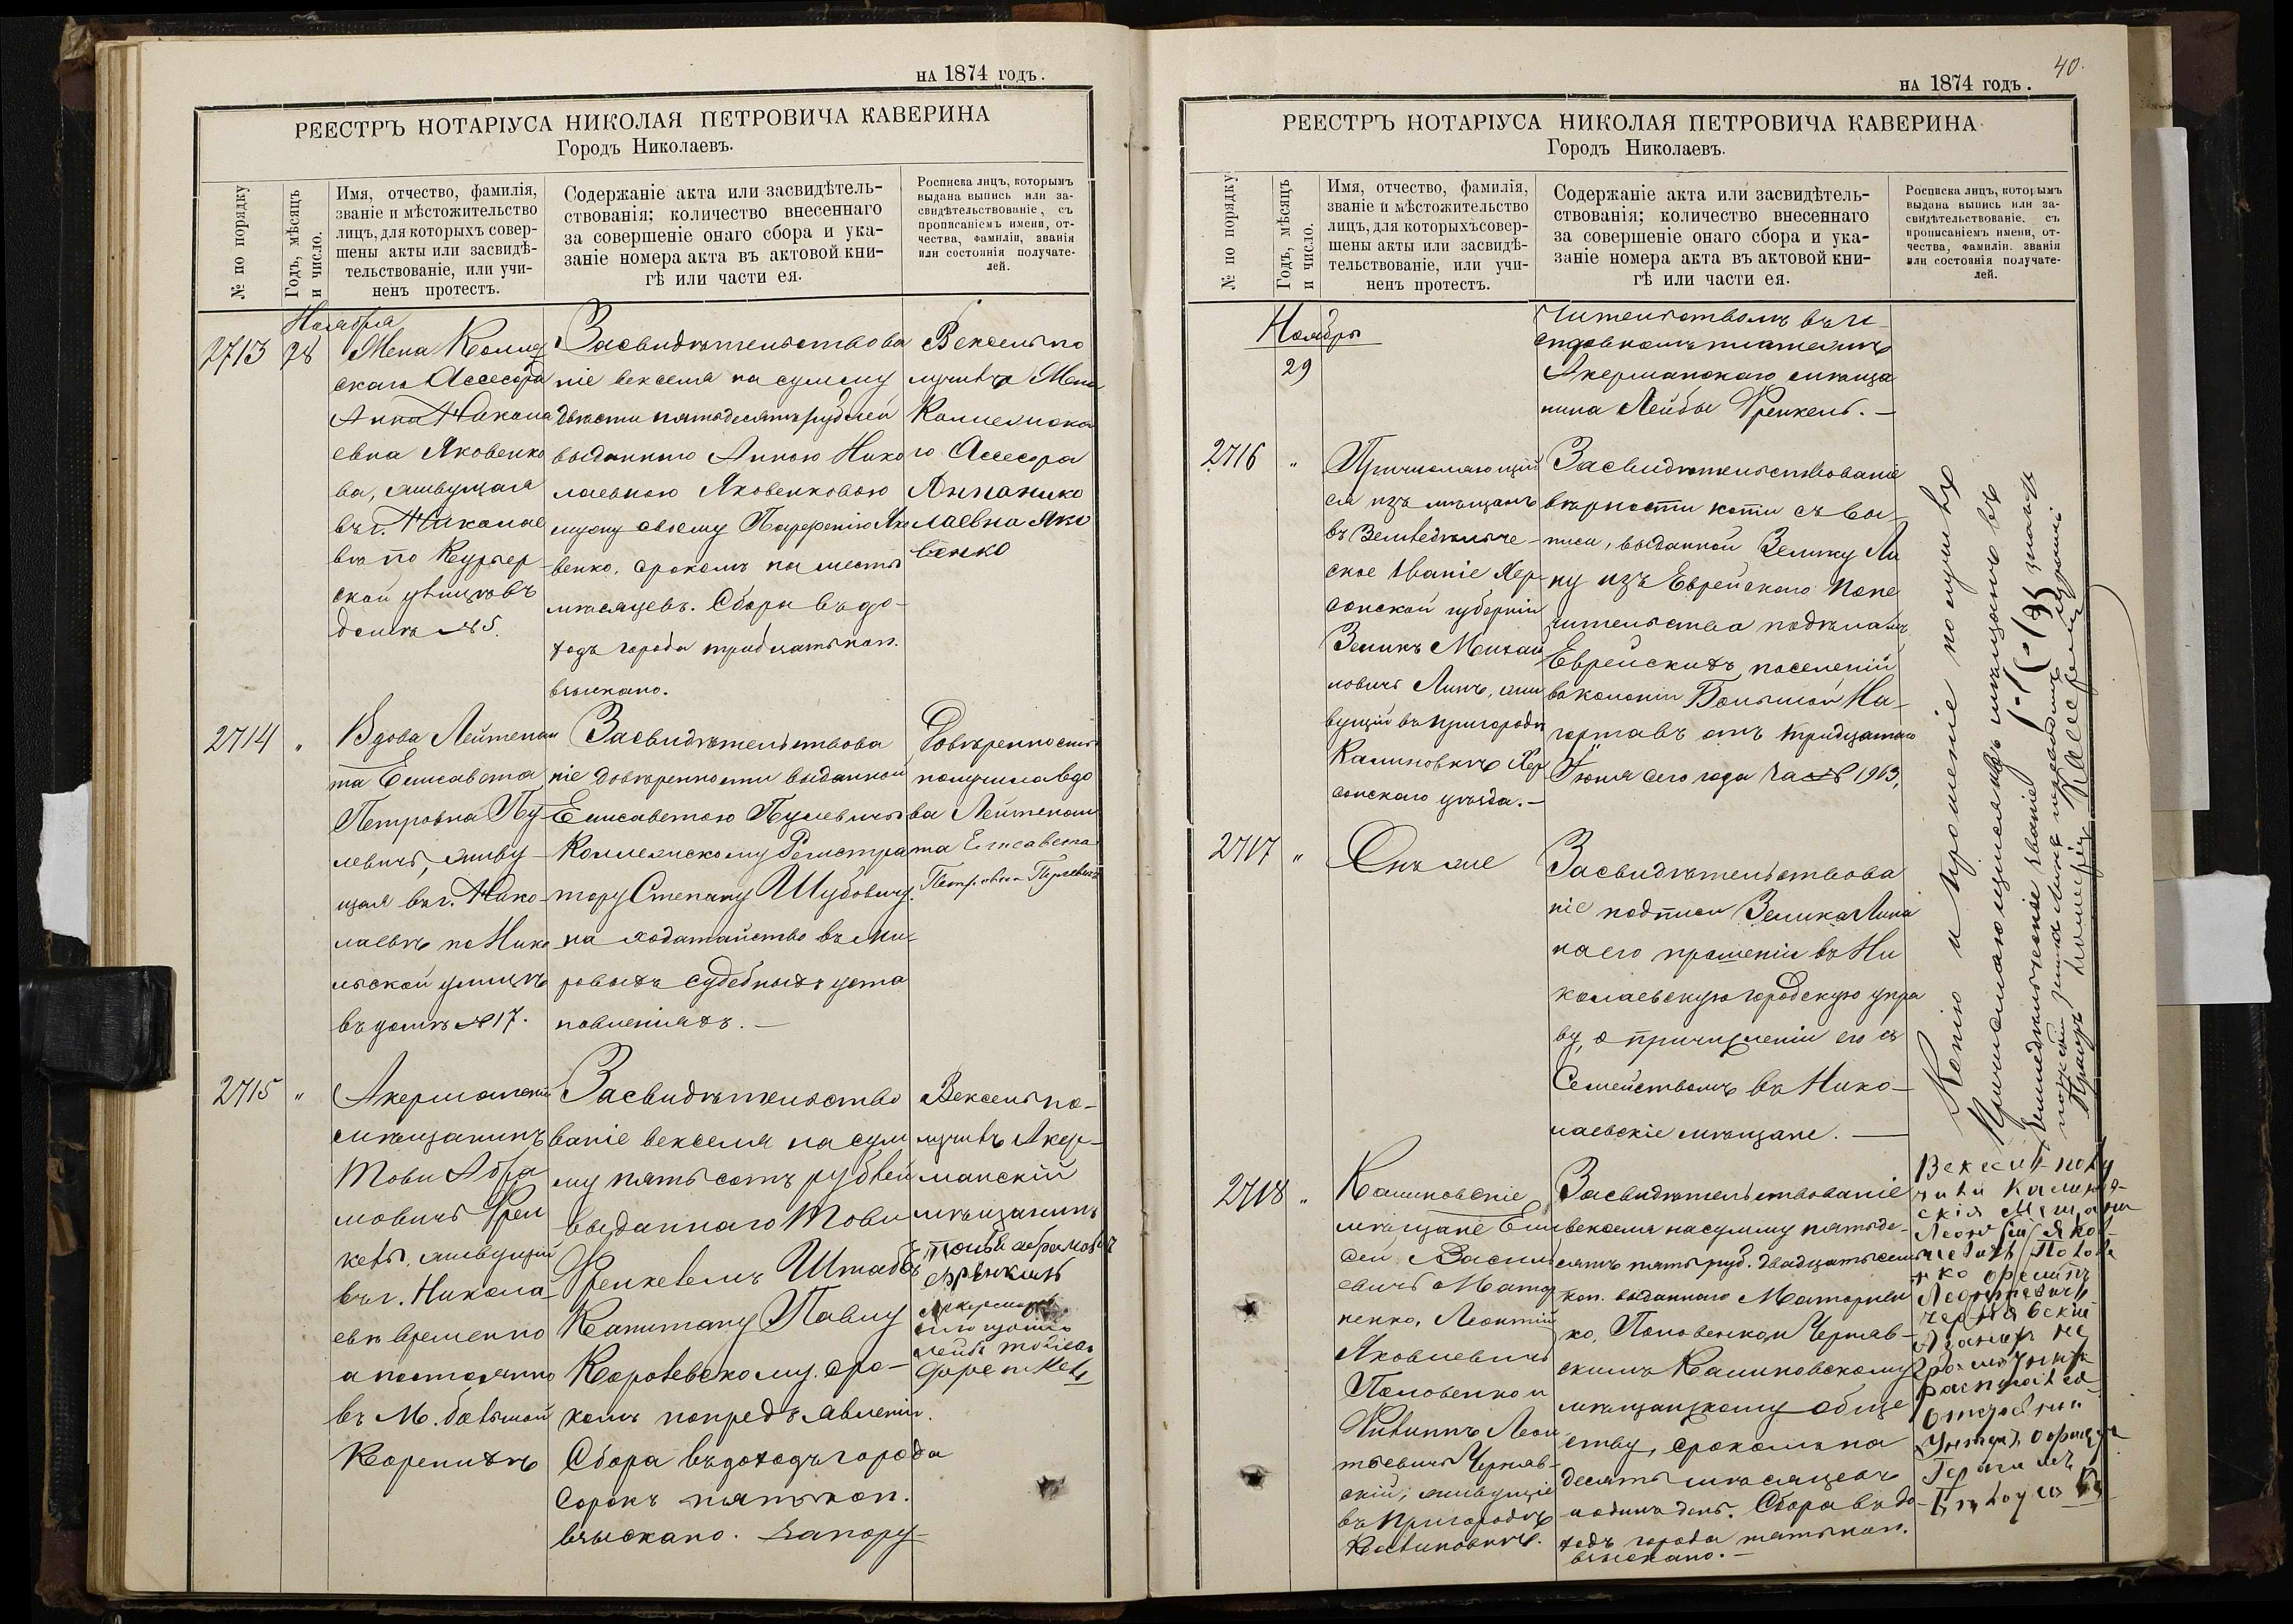 на 1874 годъ.
РЕЕСТРЪ НОТАРІУСА НИКОЛАЯ ПЕТРОВИЧА КАВЕРИНА
Городъ Николаевъ.
№ по порядку
Годъ, мѣсяцъ
и число.
Имя, отчество, фамилія,
званіе и мѣстожительство
лицъ, для которыхъ совер-
шены акты или засвидѣ-
тельствованіе, или учи-
ненъ протестъ.
Содержаніе акта или засвидѣтель-
ствованія; количество внесеннаго
за совершеніе онаго сбора и ука-
заніе номера акта въ актовой кни-
гѣ или части ея.
Росписка лицъ, которымъ
выдана выпись или за-
свидѣтельствованіе, съ
прописаніемъ имени, от-
чества, фамиліи, званія
или состоянія получате-
лей.
Ноября
2713
28
Жена Коллеж
скаго Ассесора
Анна Никола
евна Яковенко
ва, живущая
въ г. Николае
вѣ по Курьер
ской улицѣ въ
домѣ № 5.
Засвидѣтельствова
ніе векселя на сумму
двѣсти пятьдесятъ рублей
выданнаго Анною Нико
лаевною Яковенковою
мужу своему Парфенію Яко
венко, срокомъ на шесть
мѣсяцевъ. Сбора въ до-
ходъ города тридцать коп.
взыскано.
Вексель по
лучила Жена
Коллежска
го Ассесора
Анна Нико
лаевна Яко
венко
2714
"
Вдова Лейтенан
та Елисавета
Петровна Пу-
левичъ, живу-
щая въ г. Нико-
лаевѣ по Нико
льской улицѣ
въ домѣ № 17.
Засвидѣтельствова
ніе довѣренности выданной
Елисаветою Пулевичъ
Коллежскому Регистра
тору Степану Шубовичу.
на ходатайство въ Ми-
ровыхъ судебныхъ уста
новленіяхъ.—
Довѣренность
получила вдо
ва Лейтенан
та Елисавета
Петровна Пулевичъ
2715
"
Акерманскій
мѣщанинъ
Тови Абра
мовичъ Френ
кель, живущій
въ г. Никола-
евѣ временно
а постоянно
въ М. большой
Коренихѣ
Засвидѣтельство
ваніе векселя на сум
му пять сотъ рублей
выданнаго Тови
Френкелемъ Штабсъ
Капитану Павлу
Королевскому. сро-
комъ по предъявленіи.
Сбора въ доходъ города
сорокъ пять коп.
взыскано. За пору-
Вексель по-
лучилъ Акер-
манскій
мѣщанинъ
на 1874 годъ.
40.
РЕЕСТРЪ НОТАРІУСА НИКОЛАЯ ПЕТРОВИЧА КАВЕРИНА
Городъ Николаевъ.
№ по порядку
Годъ, мѣсяцъ
и число.
Имя, отчество, фамилія,
званіе и мѣстожительство
лицъ, для которыхъ совер-
шены акты или засвидѣ-
тельствованіе, или учи-
ненъ протестъ.
Содержаніе акта или засвидѣтель-
ствованія; количество внесеннаго
за совершеніе онаго сбора и ука-
заніе номера акта въ актовой кни-
гѣ или части ея.
Росписка лицъ, которымъ
выдана выпись или за-
свидѣтельствованіе, съ
прописаніемъ имени, от-
чества, фамиліи, званія
или состоянія получате-
лей.
Ноябрь
29
чительствомъ въ и-
справномъ платежѣ
Акерманскаго мѣща
нина Лейбы Френкель.—
2716
"
Причисляющій
ся изъ мѣщанъ
въ Земледѣльче-
ское званіе Хер-
сонской губерніи
Зеликъ Михай
ловичъ Линъ, жи
вущій въ пригородѣ
Калиновкѣ Хер
сонскаго уѣзда.—
Засвидѣтельствованіе
вѣрности копіи съ вы-
писи, выданной Зелику Ли
ну изъ Еврейскаго попе
чительства по дѣламъ
Еврейскихъ поселеній
въ колоніи Большой На-
гартавъ отъ тридцатаго
Іюня сего года за № 1963.
2717
"
Онъ же
Засвидѣтельствова
ніе подписи Зелика Лина
на его прошеніи въ Ни
колаевскую городскую упра
ву, о причисленіи его съ
Семействомъ въ Нико-
лаевскіе мѣщане.—
Копію и прошеніе получилъ
Причисляющійся изъ мѣщанъ въ
Земледѣльческое званіе
2718
"
Калиновскіе
мѣщане Ели
сей Василь
евичъ Матор
ненко, Леонтій
Яковлевичъ
Половенко и
Филиппъ Леон
тьевичъ Черняв-
скій, живущіе
въ пригородѣ
Калиновкѣ.
Засвидѣтельствованіе
векселя на сумму пятьде-
сятъ пять руб. двадцать семь
коп. выданнаго Маторнен
ко, Половенко и Черняв-
скимъ Калиновскому
мѣщанскому обще
ству, срокомъ на
десять мѣсяцевъ
и одинъ день. Сбора въ до-
ходъ города пять коп.
взыскано.—
Вексиль полу
чили Калинов-
скія Мещани